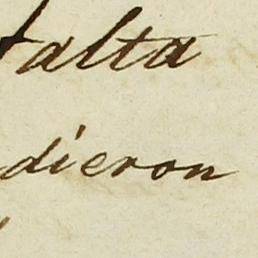 falta
dieron